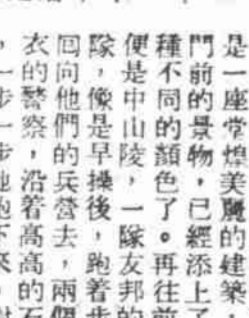 是一座堂煌美麗的建築
門前的景物，已經添上了
種不同的顏色了。再往前
便是中山陵，一隊友邦的
隊，像是早操後，跑着步
回向他們的兵營去，兩個
衣的警察，沿着高高的石
，一步一步地跑下來，